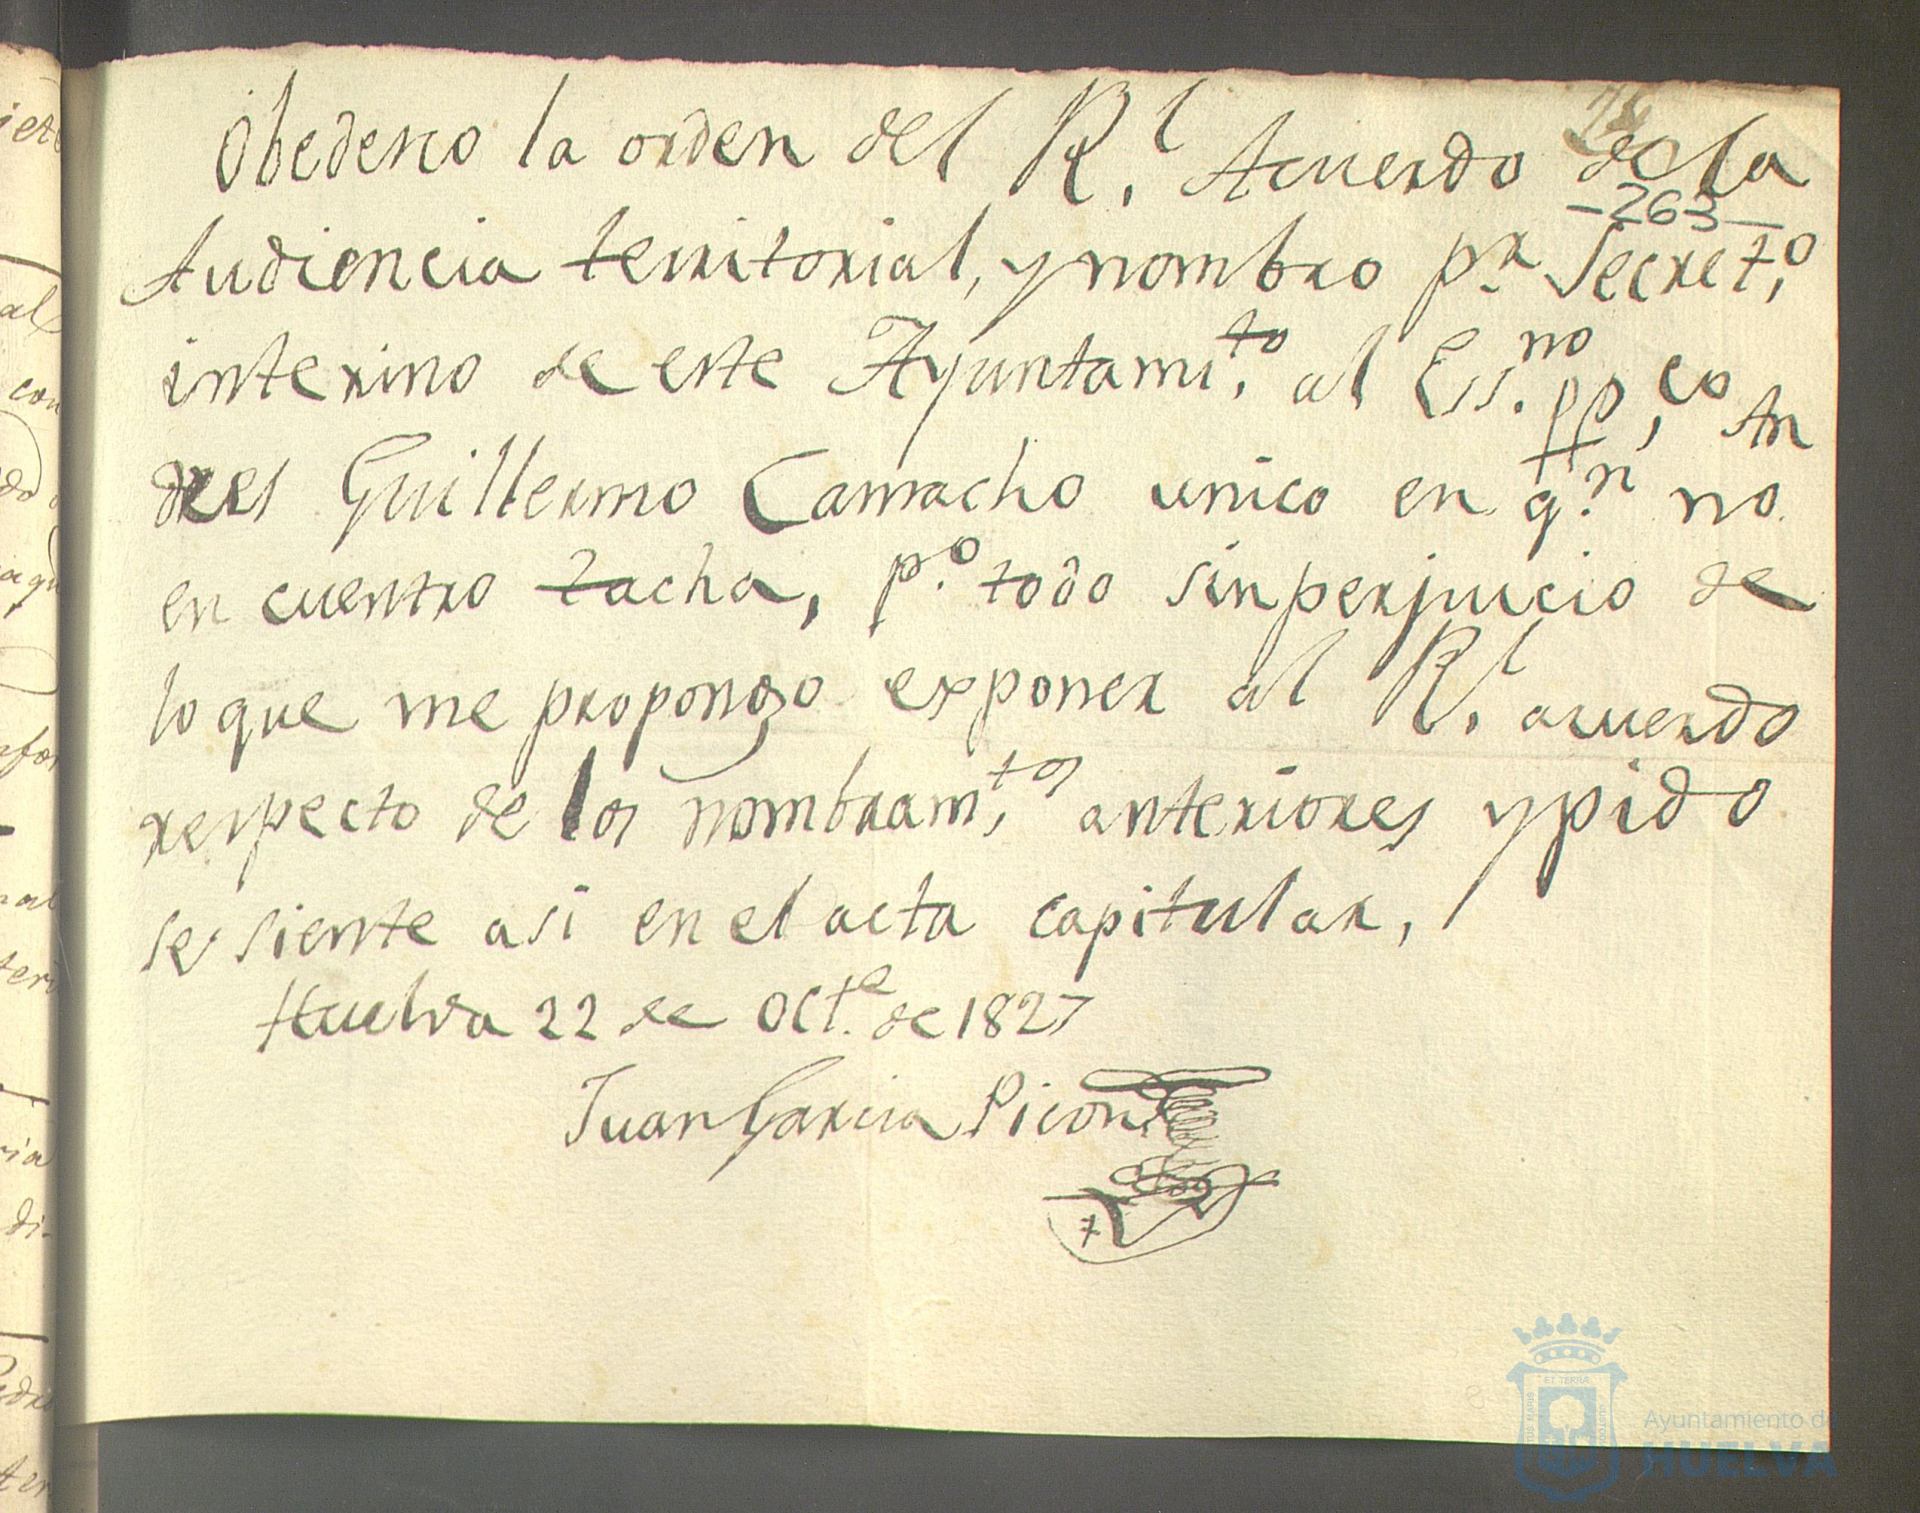 Obedesco la orden del R.l Acuerdo de la
-263-
Audiencia territorial, y nombro pr. Secret.o
interino de este Ayuntami.to al Ess.no pp,co An
dres Guillermo Camacho unico en q.n no
en cuentro tacha, p.o todo sin perjuicio de
lo que me propongo exponer al R.l acuerdo
respecto de los nombram.tos anteriores y pido
se siente asi en el acta capitular,
Huelva 22 de Oct.e de 1827
Juan Garcia Picon
Ayuntamiento de
HUELVA